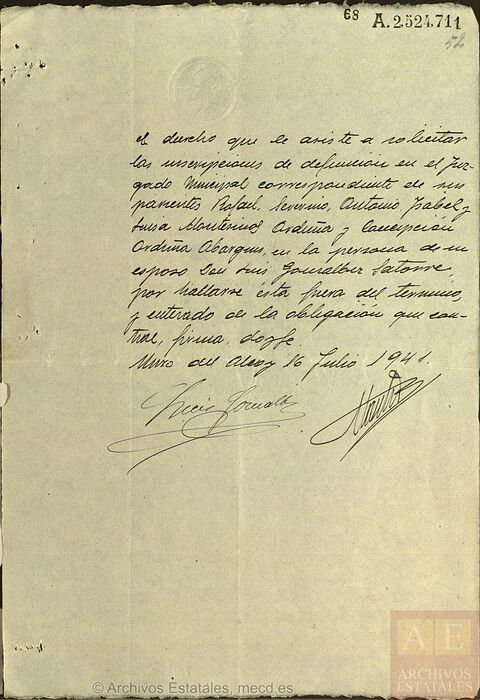 68 A.2.524.711
52
el derecho que le asiste a solicitar
las inscripciones de defunción en el Juz-
gado Municipal correspondiente de sus
parientes Rafael, Severino, Antonio, Isabel y
Luisa Montesinos Orduña y Concepción
Orduña Abargues, en la persona de su
esposo Don Luis Gonzalbez Satorre,
por hallarse ésta fuera del término,
y enterado de la obligación que con-
trae, firma, doy fe.
Muro del Alcoy 16 Julio 1941.
Luis Gonzalbez
© Archivos Estatales, mecd.es
AE
ARCHIVOS
ESTATALES